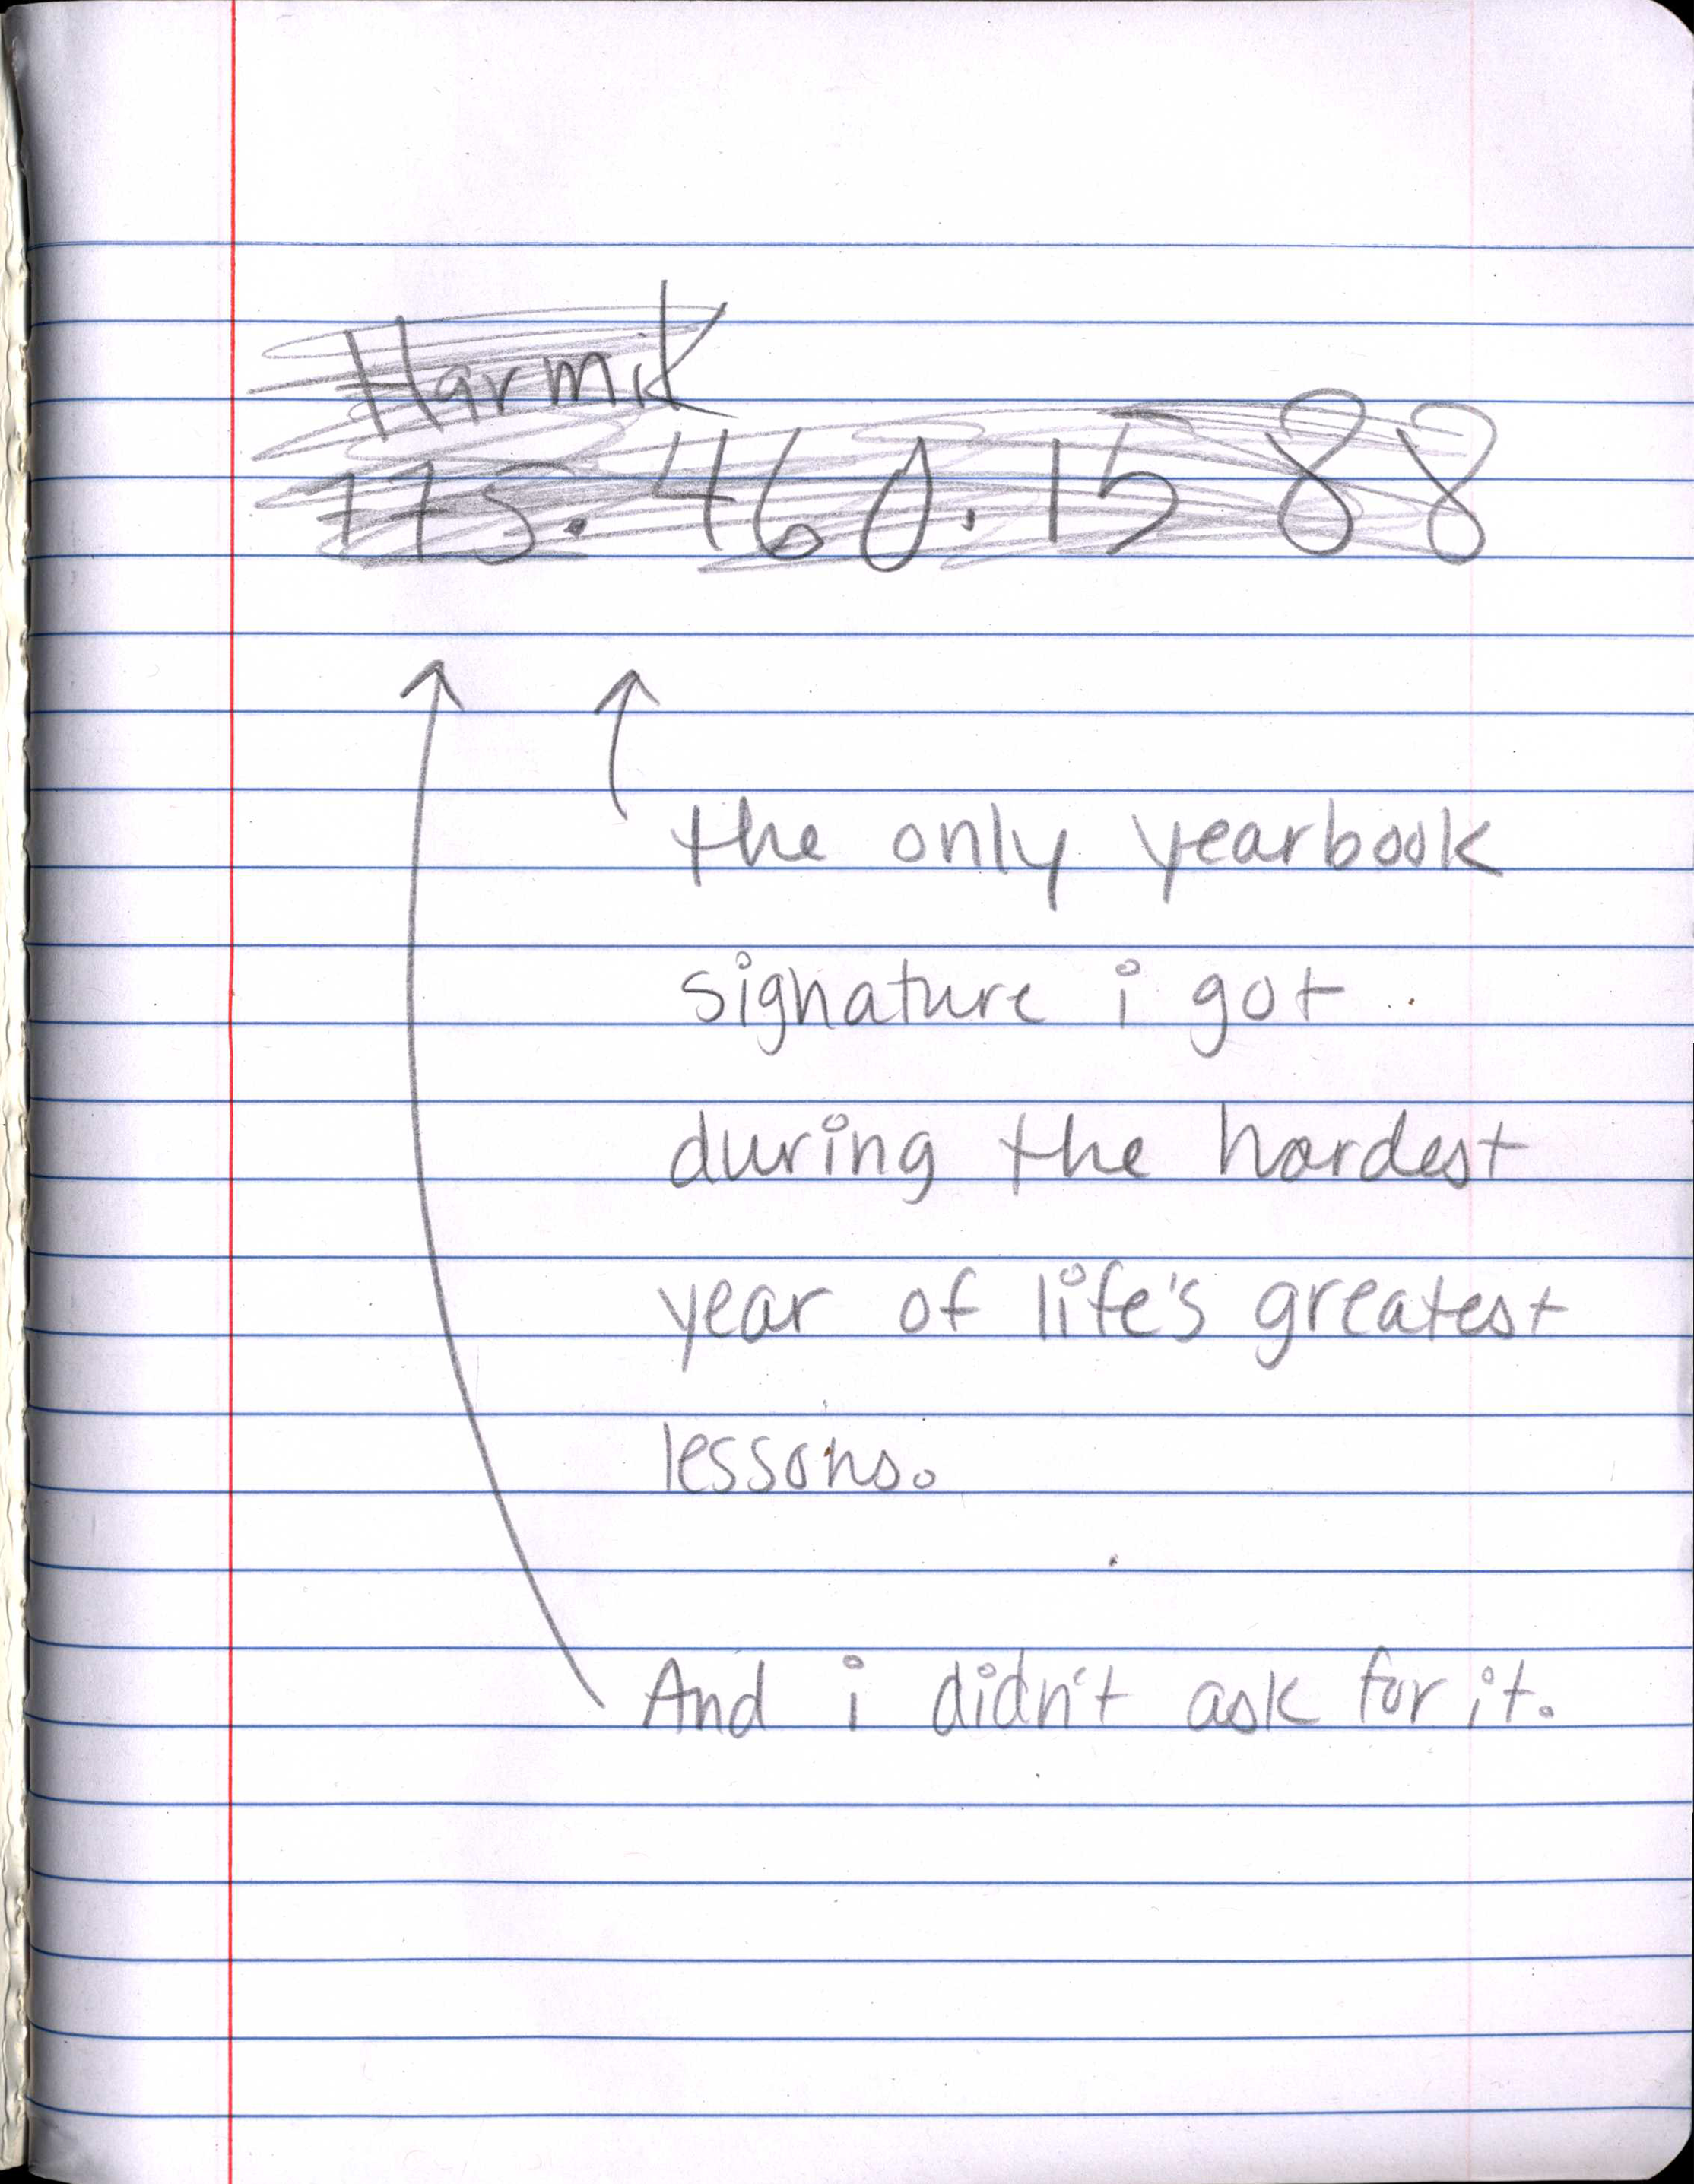 Harmik
775.460.1588
the only yearbook
signature i got
during the hardest
year of life's greatest
lessons.
And i didn't ask for it.